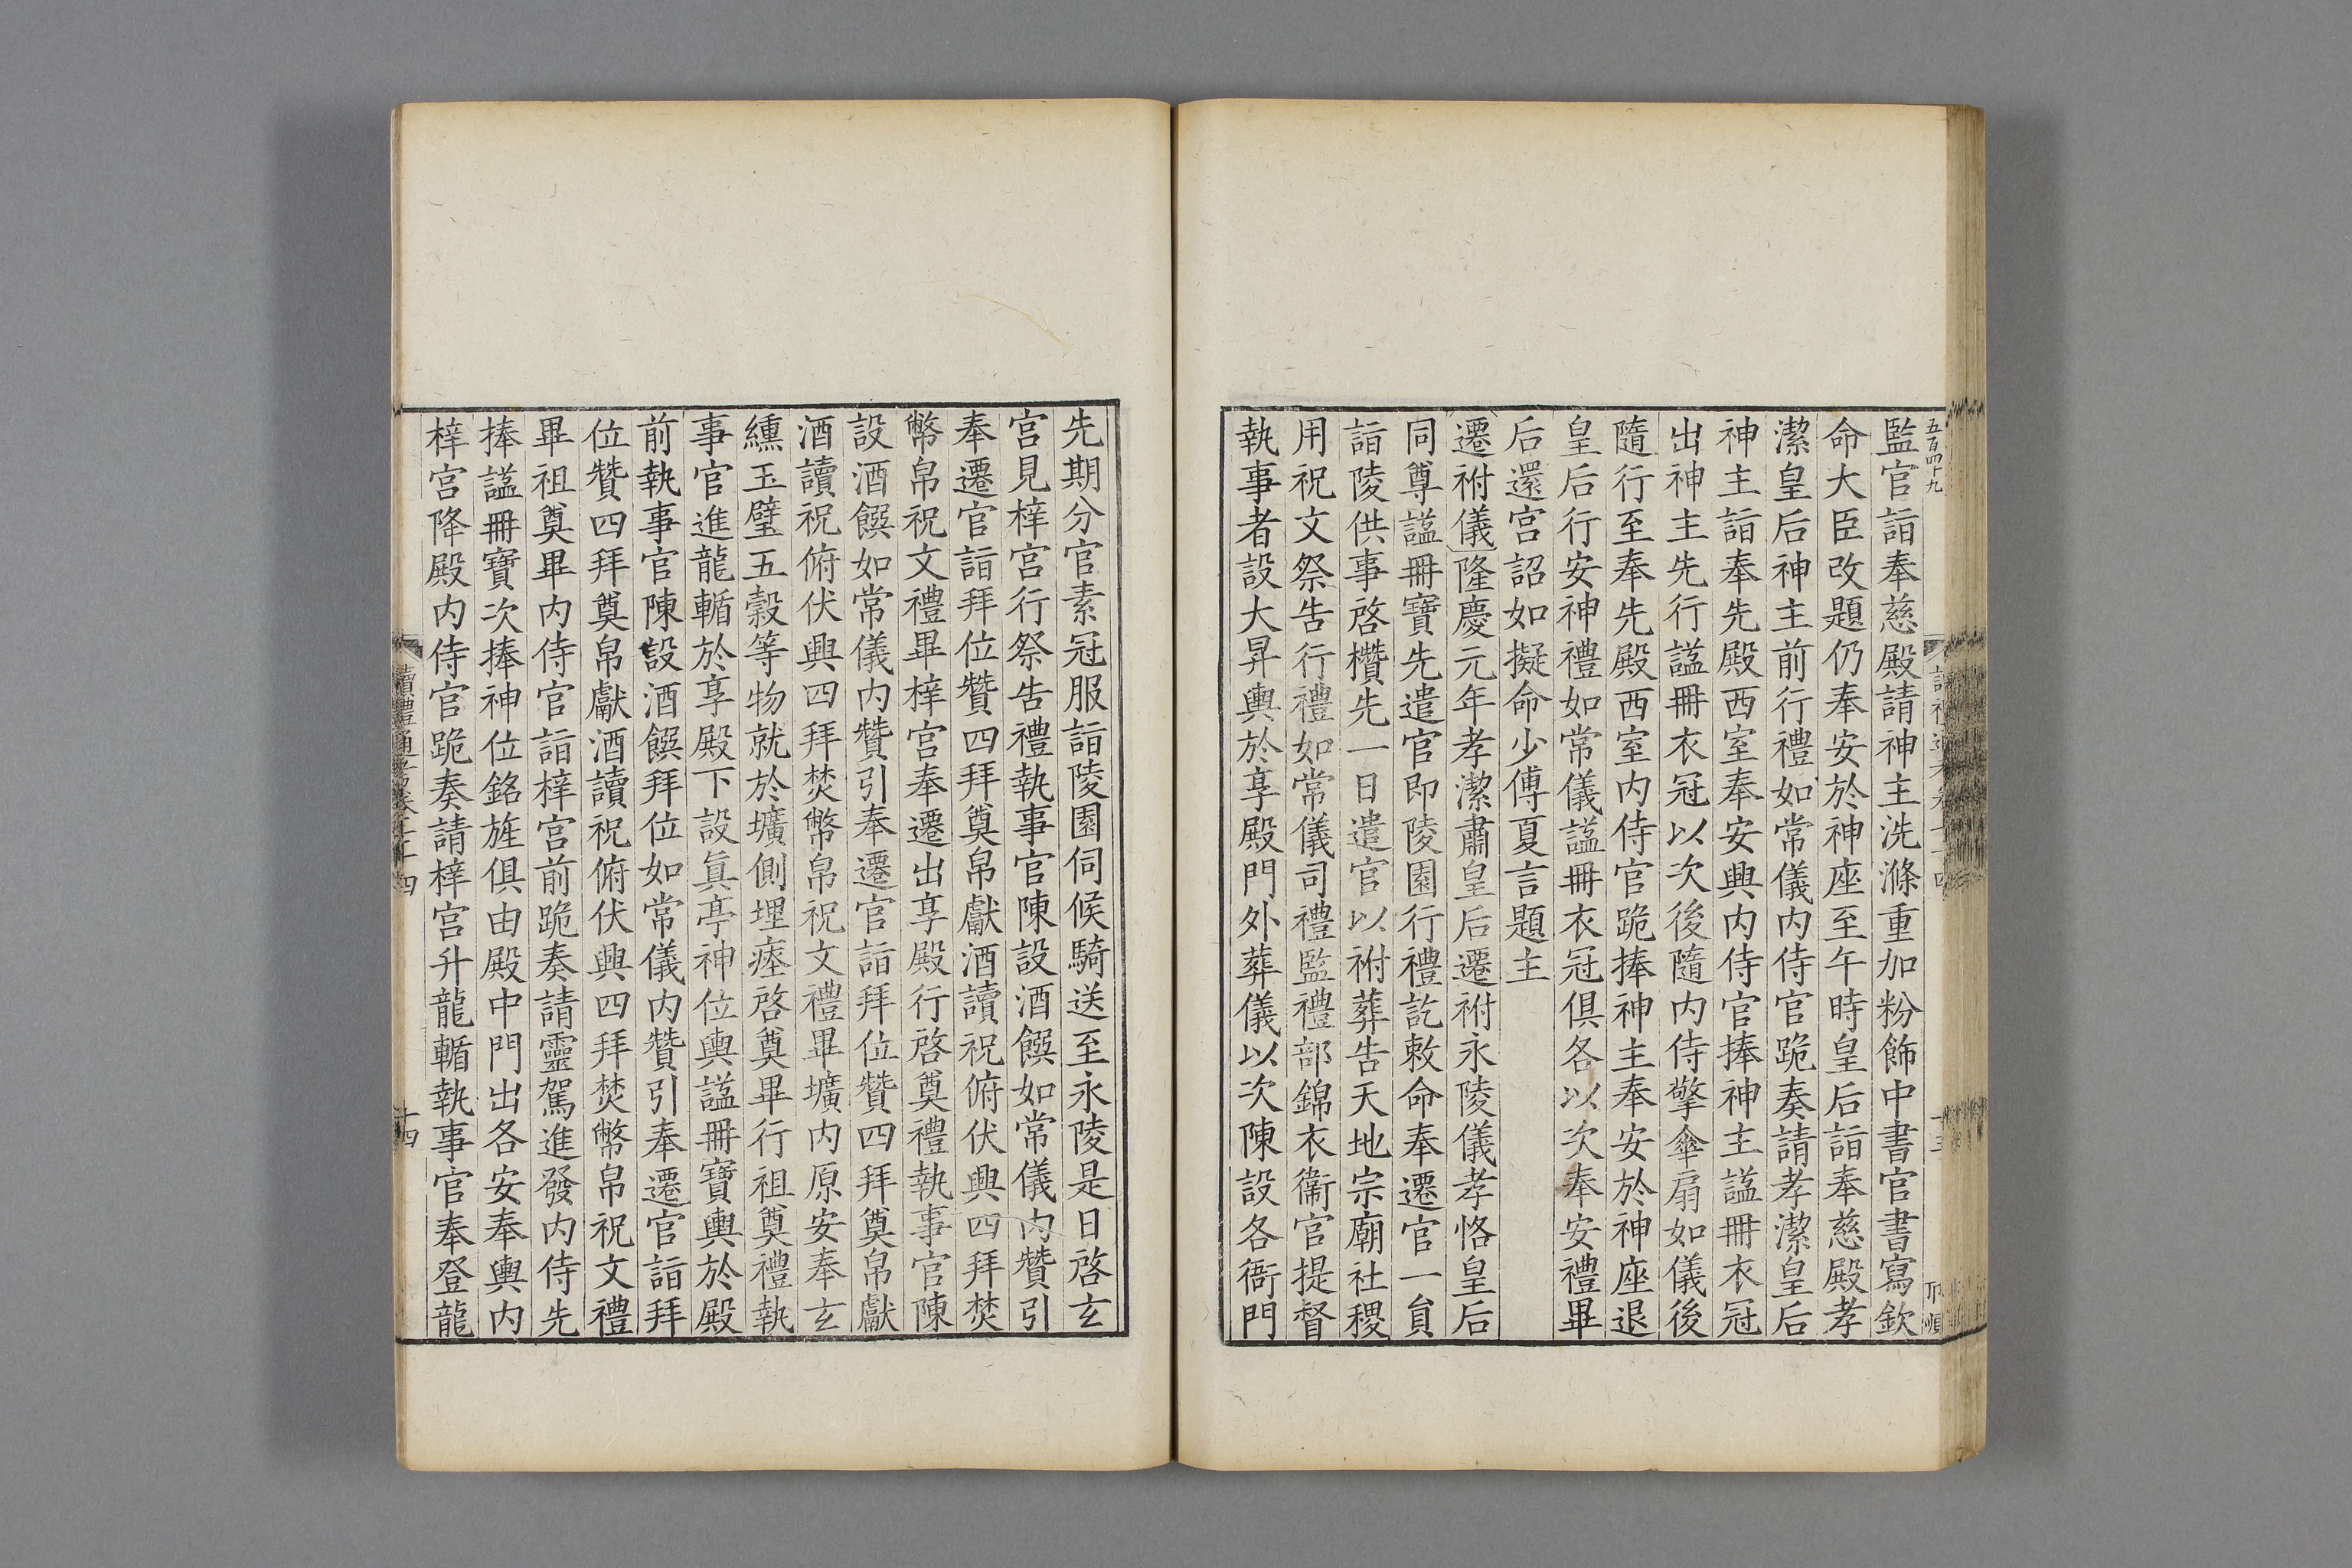 五百四十九
監官詣奉慈殿請神主洗滌重加粉飾中書官書寫欽
命大臣改題仍奉安於神座至午時皇后詣奉慈殿孝
潔皇后神主前行禮如常儀内侍官跪奏請孝潔皇后
神主詣奉先殿西室奉安興内侍官捧神主謚冊衣冠
出神主先行謚冊衣冠以次後隨内侍擎傘扇如儀後
隨行至奉先殿西室内侍官跪捧神主奉安於神座退
皇后行安神禮如常儀謚冊衣冠俱各以次奉安禮畢
后還宮詔如擬命少傅夏言題主
遷祔儀隆慶元年孝潔肅皇后遷祔永陵儀孝恪皇后
同尊謚冊寶先遣官即陵園行禮訖敕命奉遷官一員
詣陵供事啓欑先一日遣官以祔葬告天地宗廟社稷
用祝文祭告行禮如常儀司禮監禮部錦衣衞官提督
執事者設大昇輿於享殿門外葬儀以次陳設各衙門
先期分官素冠服詣陵園伺候騎送至永陵是日啓玄
宮見梓宮行祭告禮執事官陳設酒饌如常儀内贊引
奉遷官詣拜位贊四拜奠帛獻酒讀祝俯伏興四拜焚
幣帛祝文禮畢梓宮奉遷出享殿行啓奠禮執事官陳
設酒饌如常儀内贊引奉遷官詣拜位贊四拜奠帛獻
酒讀祝俯伏興四拜焚幣帛祝文禮畢壙内原安奉玄
纁玉璧五穀等物就於壙側埋瘞啓奠畢行祖奠禮執
事官進龍輴於享殿下設眞亭神位輿謚冊寶輿於殿
前執事官陳設酒饌拜位如常儀内贊引奉遷官詣拜
位贊四拜奠帛獻酒讀祝俯伏興四拜焚幣帛祝文禮
畢祖奠畢内侍官詣梓宮前跪奏請靈駕進發内侍先
捧謚冊寶次捧神位銘旌俱由殿中門出各安奉輿内
梓宮降殿内侍官跪奏請梓宮升龍輴執事官奉登龍
讀禮通考卷二十四
十四